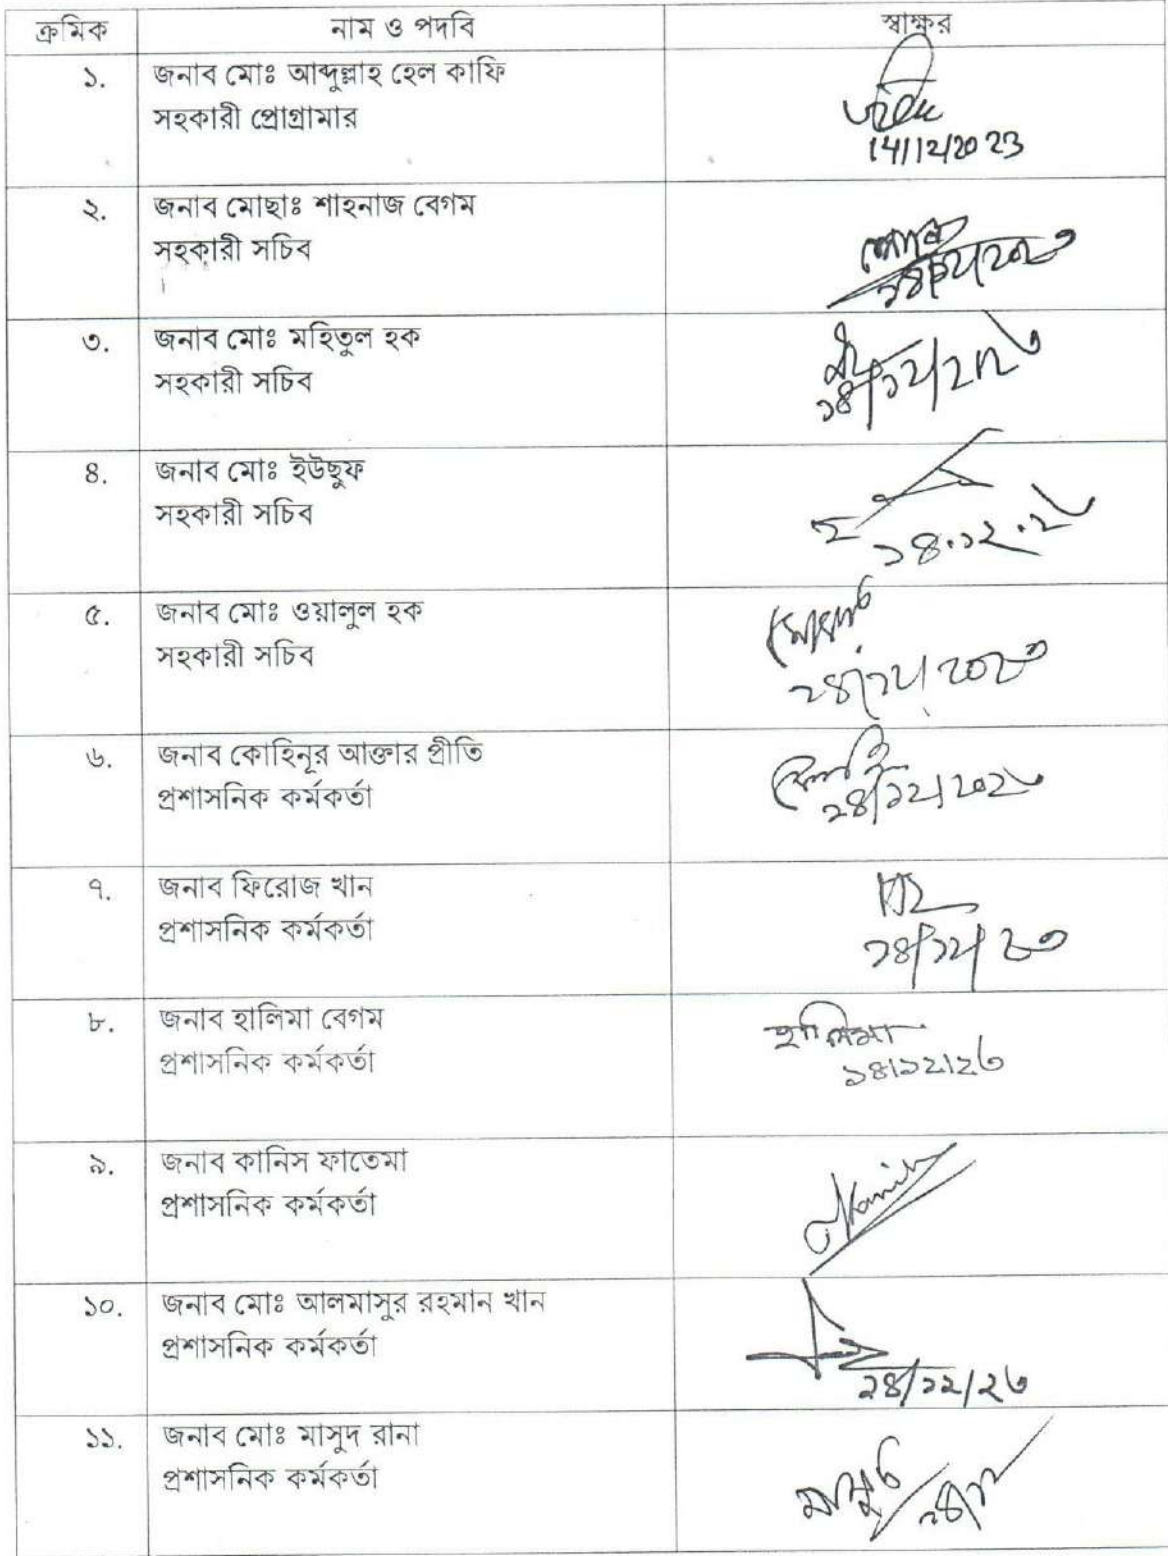 ক্রমিক নাম ও পদবি স্বাক্ষর
১. জনাব মোঃ আব্দুল্লাহ হেল কাফি
সহকারী প্রোগ্রামার
14/12/2023
২. জনাব মোছাঃ শাহনাজ বেগম
সহকারী সচিব
৩. জনাব মোঃ মহিতুল হক
সহকারী সচিব
৪. জনাব মোঃ ইউছুফ
সহকারী সচিব
১৪.১২.২৩
৫. জনাব মোঃ ওয়ালুল হক
সহকারী সচিব
৬. জনাব কোহিনূর আক্তার প্রীতি
প্রশাসনিক কর্মকর্তা
৭. জনাব ফিরোজ খান
প্রশাসনিক কর্মকর্তা
১৪/১২/২৩
৮. জনাব হালিমা বেগম
প্রশাসনিক কর্মকর্তা
হালিমা
১৪/১২/২৩
৯. জনাব কানিস ফাতেমা
প্রশাসনিক কর্মকর্তা
১০. জনাব মোঃ আলমাসুর রহমান খান
প্রশাসনিক কর্মকর্তা
১৪/১২/২৩
১১. জনাব মোঃ মাসুদ রানা
প্রশাসনিক কর্মকর্তা
মাসুদ